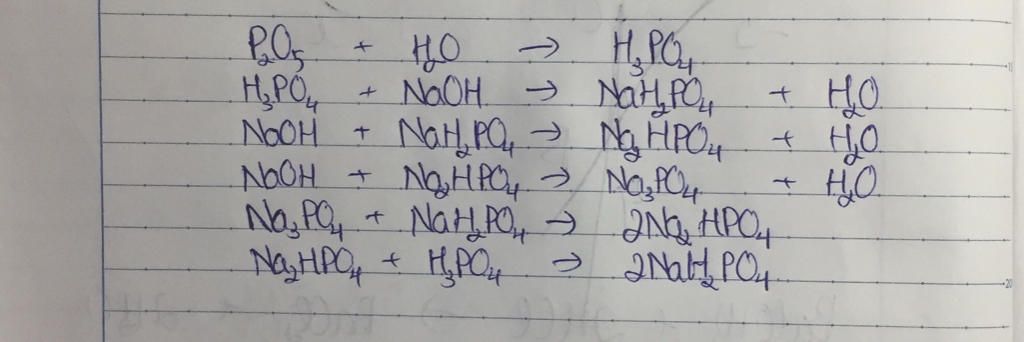 P₂O₅ + H₂O → H₃PO₄
H₃PO₄ + NaOH → NaH₂PO₄ + H₂O
NaOH + NaH₂PO₄ → Na₂HPO₄ + H₂O
NaOH + Na₂HPO₄ → Na₃PO₄ + H₂O
Na₃PO₄ + NaH₂PO₄ → 2Na₂HPO₄
Na₂HPO₄ + H₃PO₄ → 2NaH₂PO₄